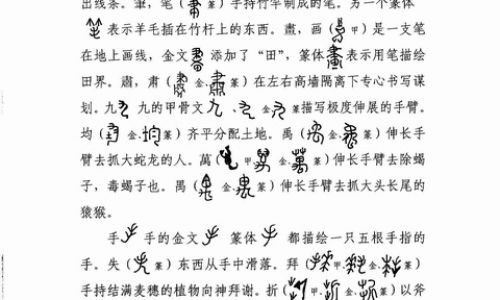 出线条。筆，笔（金、篆）手持竹竿制成的笔。另一个篆体
表示羊毛插在竹杆上的东西。畫，画（甲）是一支笔
在地上画线，金文 添加了“田”，篆体 表示用笔描绘
田界。肅，肃（金、篆）在左右高墙隔离下专心书写谋
划。九 九的甲骨文 、金 篆描写极度伸展的手臂。
均（金、篆）齐平分配土地。禹（金、篆）伸长手
臂去抓大蛇龙的人。萬（甲、金、篆）伸长手臂去除蝎
子，毒蝎子也。禺（金、篆）伸长手臂去抓大头长尾的
猿猴。
手 手的金文 篆体 都描绘一只五根手指的
手。失（篆）东西从手中滑落。拜（甲、金、篆）
手持结满麦穗的植物向神拜谢。折（甲、金、篆）以斧